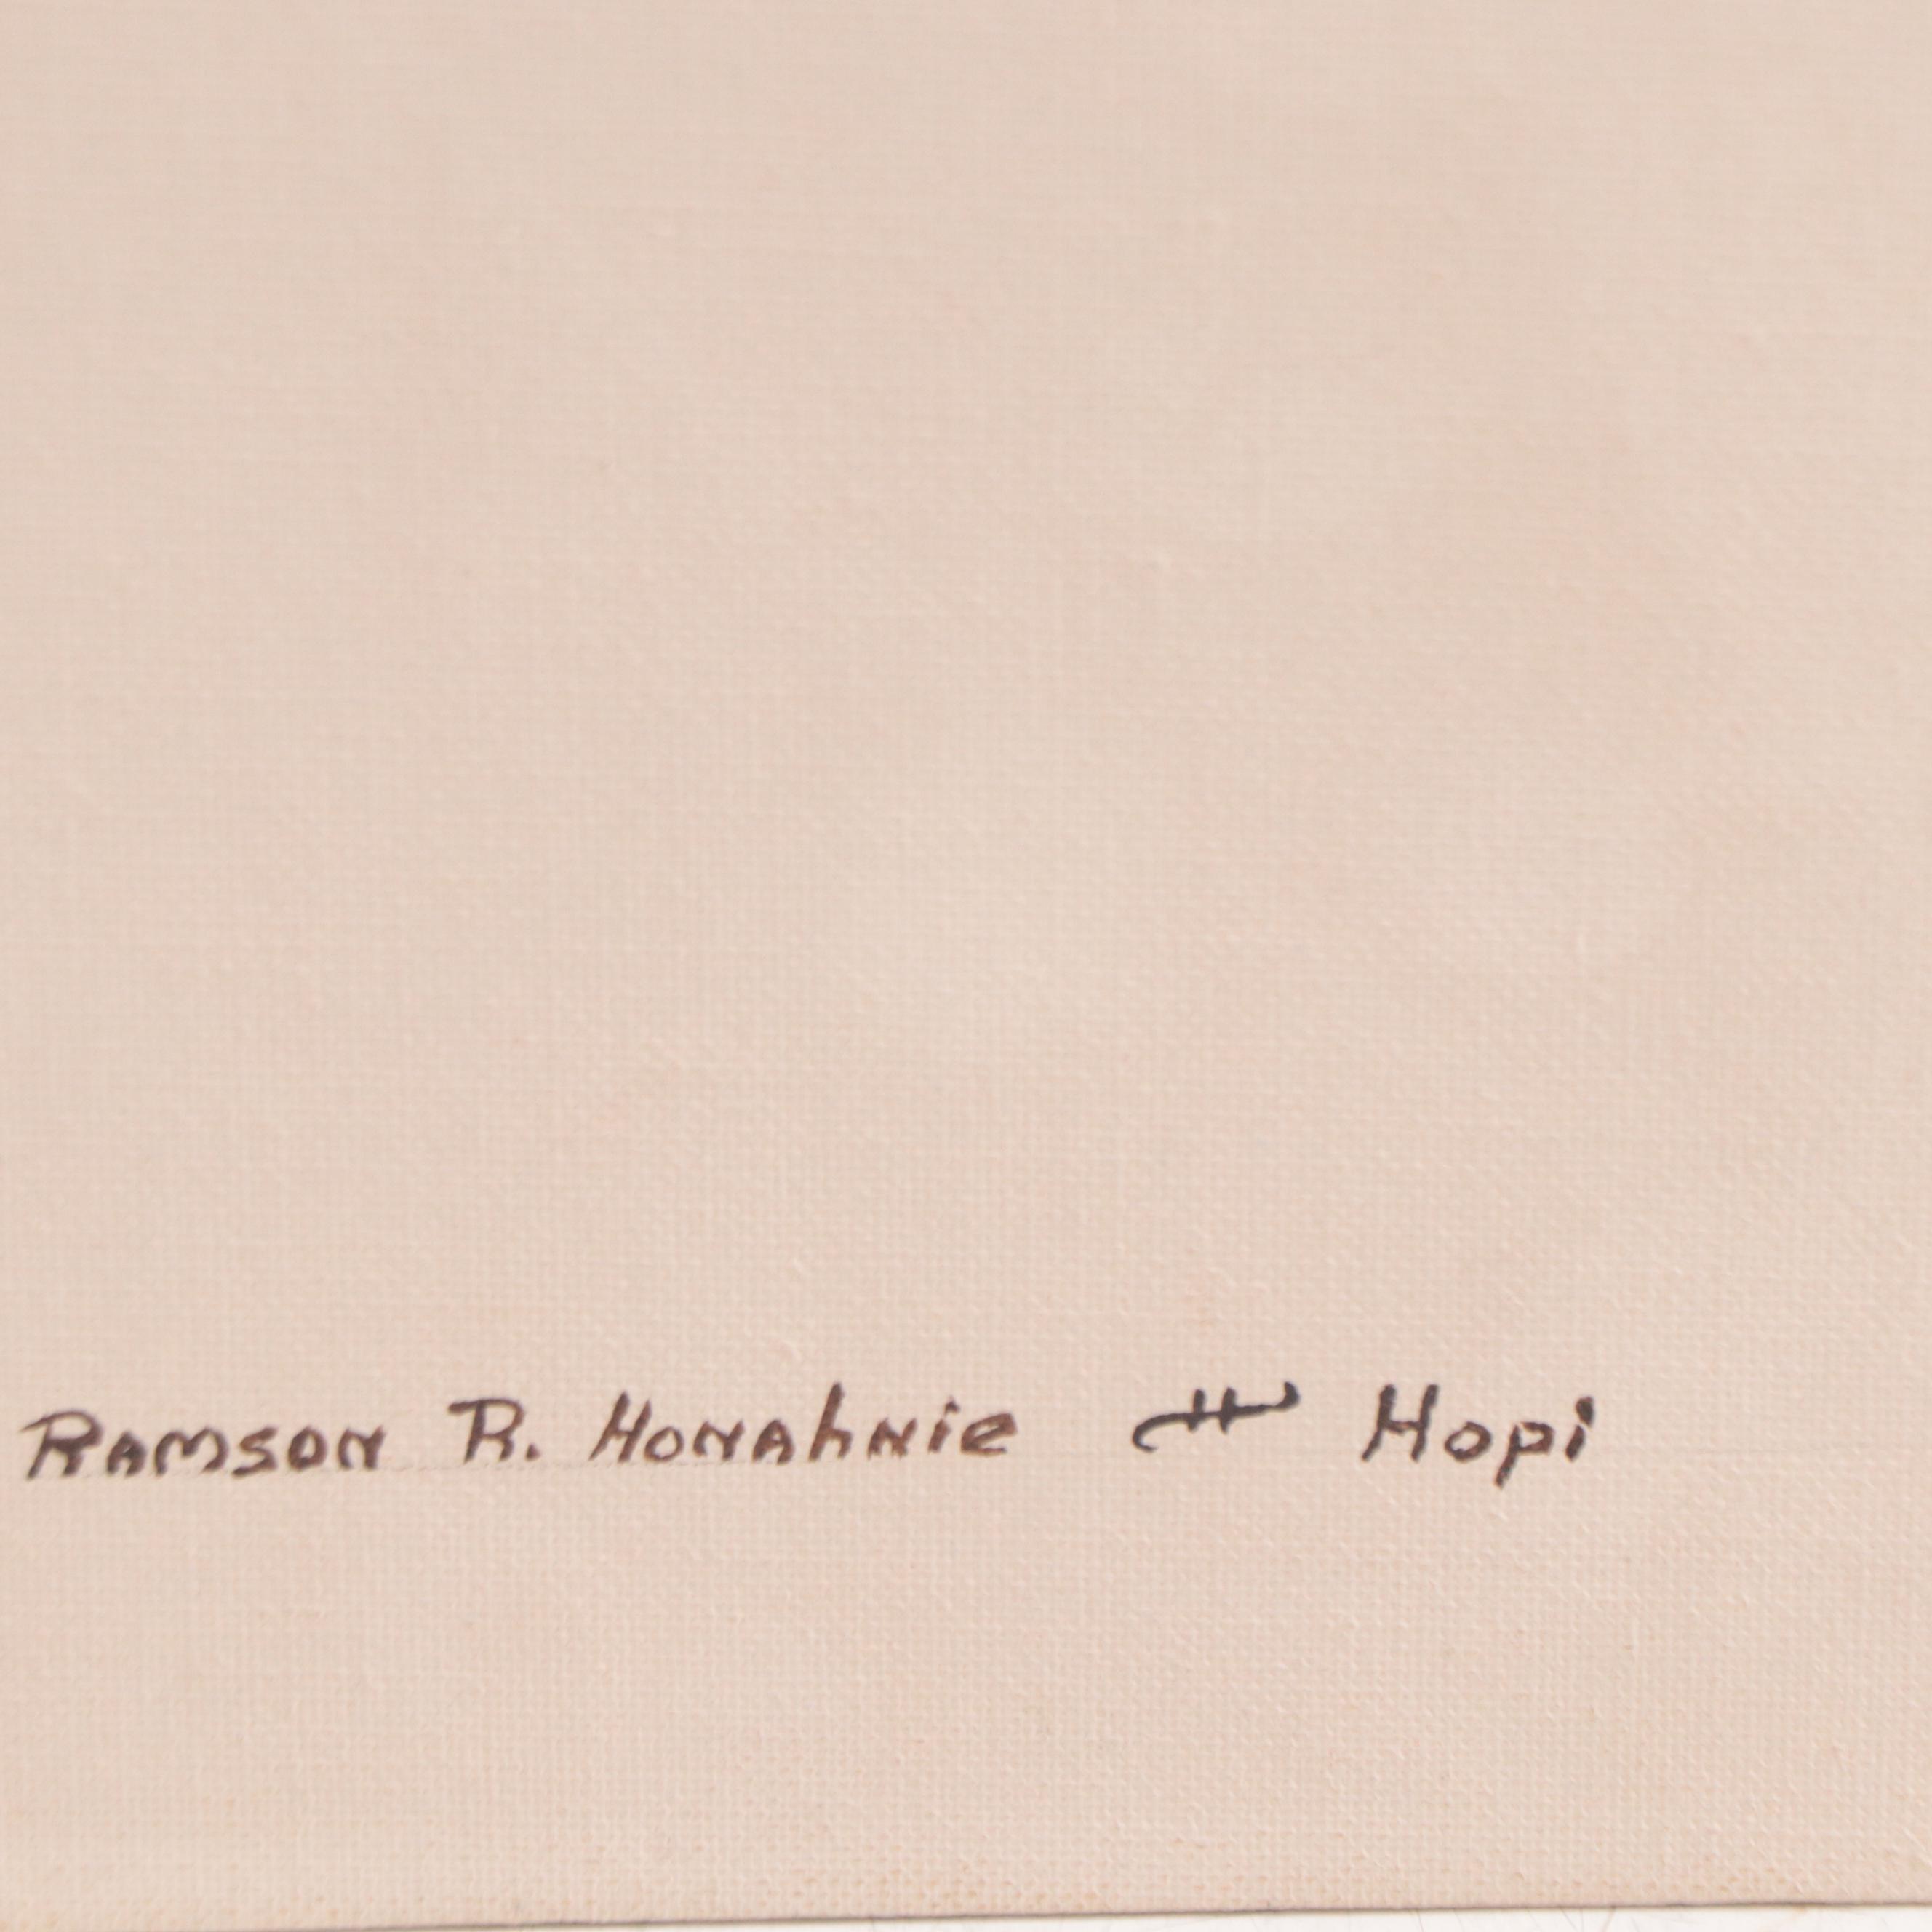 Ramson R. Honahnie Hopi